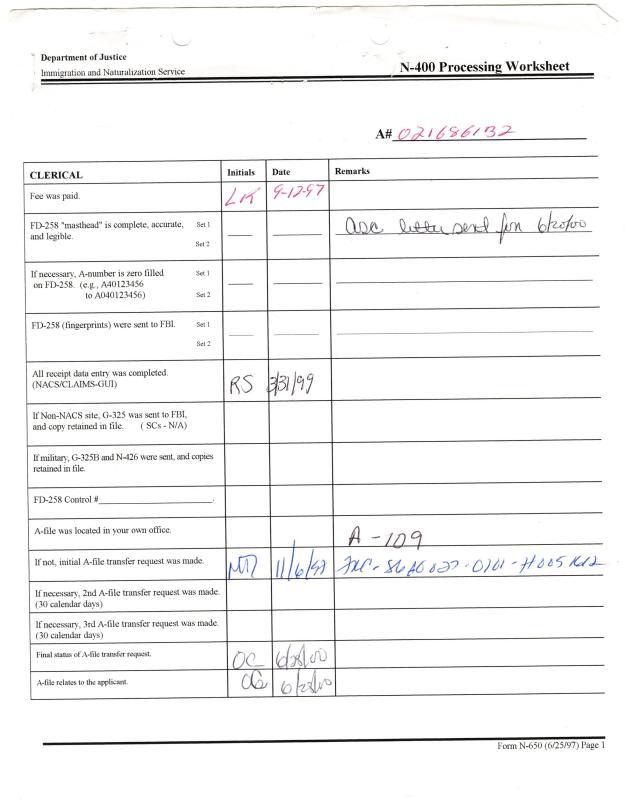 Department of Justice
Immigration and Naturalization Service
N-400 Processing Worksheet
A# 021686132
CLERICAL Initials Date Remarks
Fee was paid. LK 9-12-97
FD-258 "masthead" is complete, accurate, Set 1
and legible.
Set 2
ASC letter send for 6/20/00
If necessary, A-number is zero filled Set 1
on FD-258. (e.g., A40123456
to A040123456) Set 2
FD-258 (fingerprints) were sent to FBI. Set 1
Set 2
All receipt data entry was completed.
(NACS/CLAIMS-GUI) RS 3/31/99
If Non-NACS site, G-325 was sent to FBI,
and copy retained in file. ( SCs - N/A)
If military, G-325B and N-426 were sent, and copies
retained in file.
FD-258 Control #____________________.
A-file was located in your own office. A-109
If not, initial A-file transfer request was made. 11/6/97
If necessary, 2nd A-file transfer request was made.
(30 calendar days)
If necessary, 3rd A-file transfer request was made.
(30 calendar days)
Final status of A-file transfer request. OC 6/28/00
A-file relates to the applicant. OC 6/28/00
Form N-650 (6/25/97) Page 1